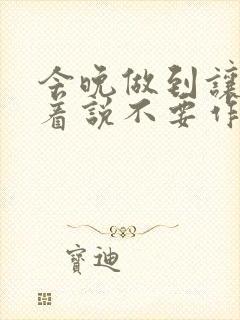 今晚做到讓
着說不要作
寶迪